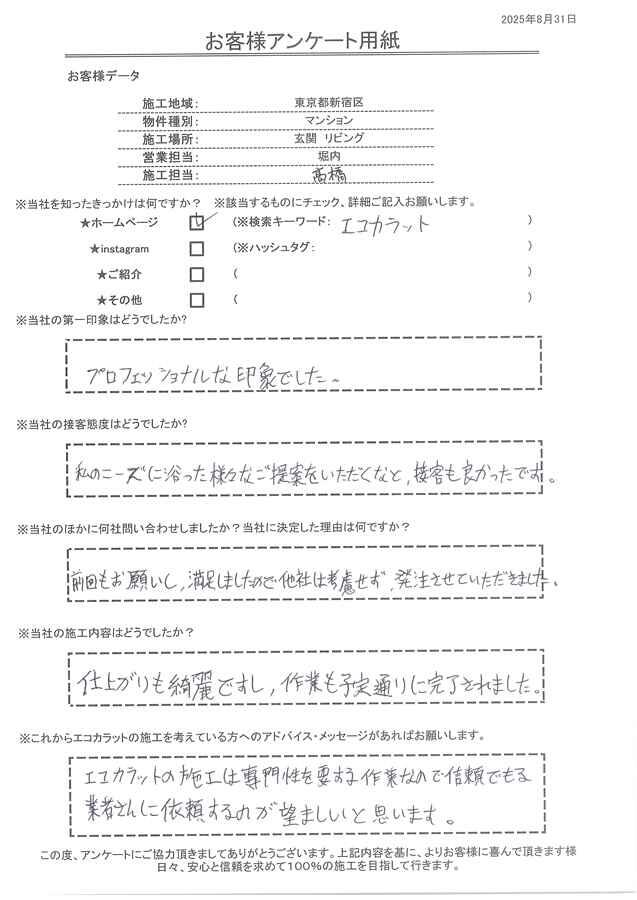 2025年8月31日
お客様アンケート用紙
お客様データ
施工地域: 東京都新宿区
物件種別: マンション
施工場所: 玄関 リビング
営業担当: 堀内
施工担当: 高橋
※当社を知ったきっかけは何ですか? ※該当するものにチェック、詳細ご記入お願いします。
★ホームページ (※検索キーワード: エコカラット )
★instagram (※ハッシュタグ: )
★ご紹介 ( )
★その他 ( )
※当社の第一印象はどうでしたか?
プロフェッショナルな印象でした。
※当社の接客態度はどうでしたか?
私のニーズに沿った様々なご提案をいただくなど、接客も良かったです。
※当社のほかに何社問い合わせしましたか?当社に決定した理由は何ですか?
前回もお願いし、満足しましたので他社は考慮せず、発注させていただきました。
※当社の施工内容はどうでしたか?
仕上がりも綺麗ですし、作業も予定通りに完了されました。
※これからエコカラットの施工を考えている方へのアドバイス・メッセージがあればお願いします。
エコカラットの施工は専門性を要する作業なので信頼できる
業者さんに依頼するのが望ましいと思います。
この度、アンケートにご協力頂きましてありがとうございます。上記内容を基に、よりお客様に喜んで頂きます様
日々、安心と信頼を求めて100%の施工を目指して行きます。